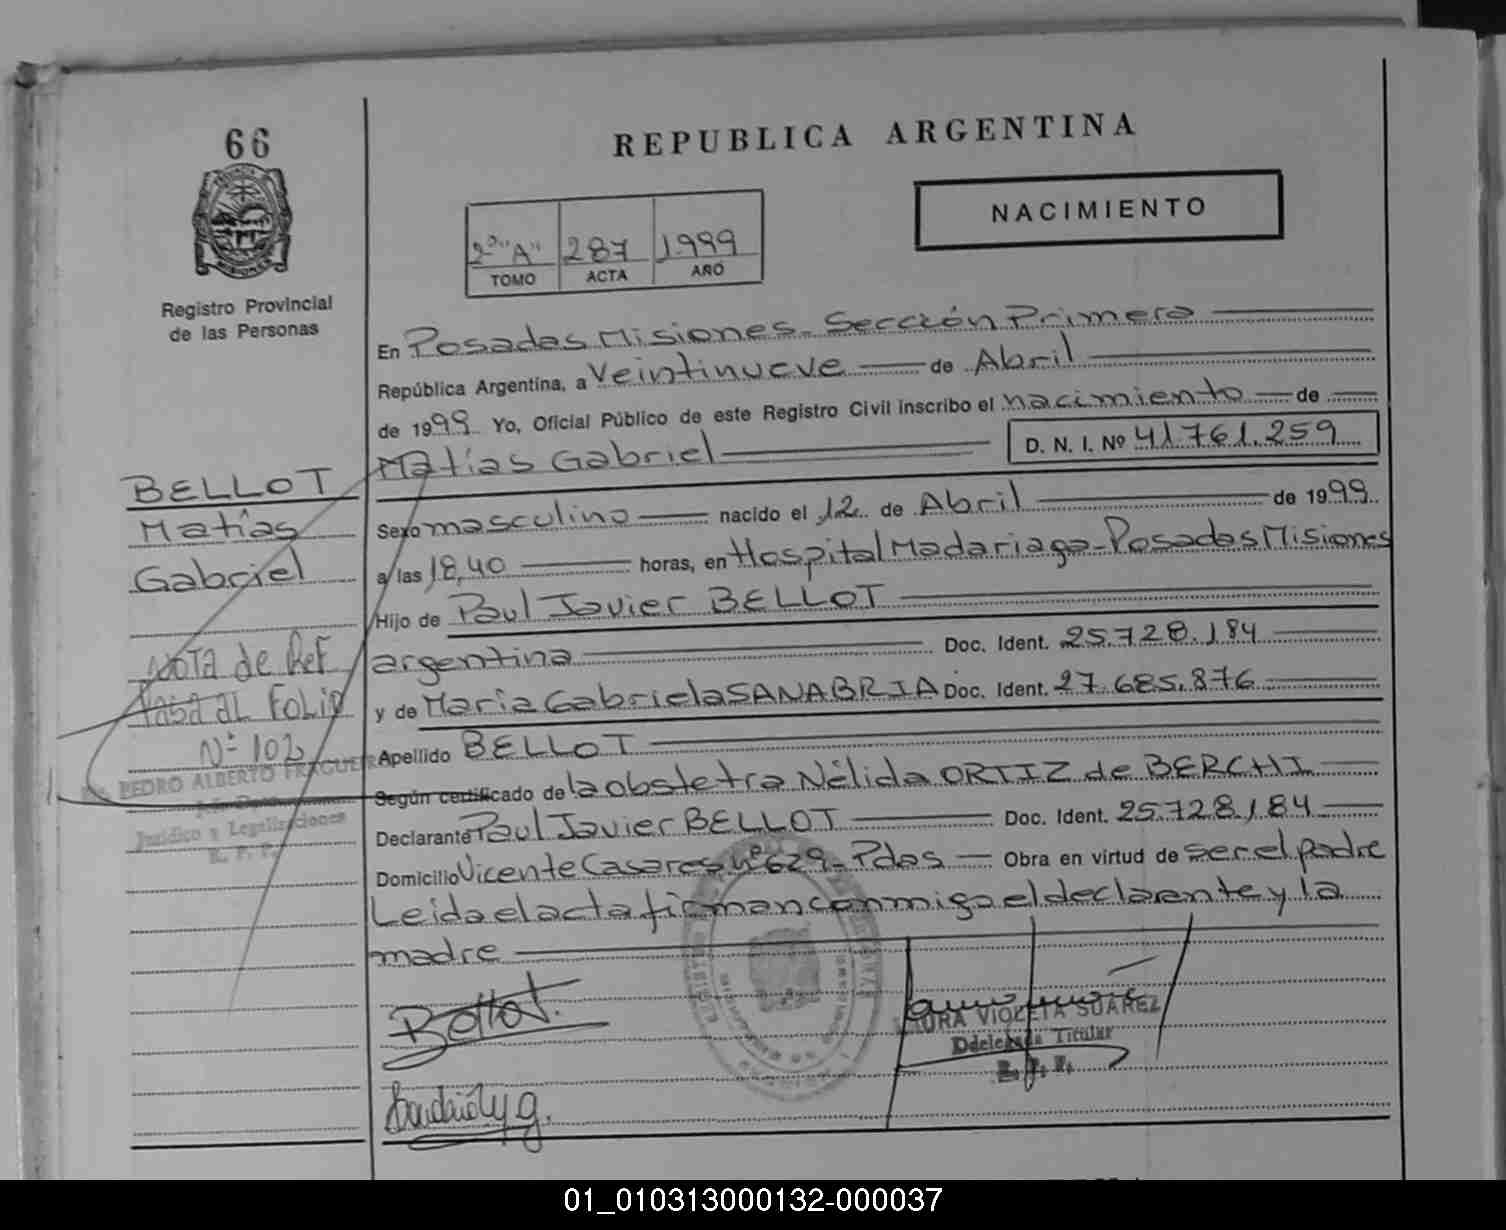 66
Registro Provincial
de las Personas
REPUBLICA ARGENTINA
NACIMIENTO
2º "A" 287 1999
TOMO ACTA AÑO
En Posadas Misiones - Sección Primera
República Argentina, a Veintinueve de Abril
de 1999 Yo, Oficial Público de este Registro Civil inscribo el nacimiento de
Matías Gabriel D. N. I. Nº 41.761.259
BELLOT
Matías
Gabriel
Sexo masculino nacido el 12 de Abril de 1999
a las 18,40 horas, en Hospital Madariaga - Posadas Misiones
Hijo de Paul Javier BELLOT
argentina Doc. Ident. 25.728.184
y de Maria Gabriela SANABRIA Doc. Ident. 27.685.876
Apellido BELLOT
NOTA de REF
PASA AL FOLIO
Nº 102
PEDRO ALBERTO FRAGUEIR
Jurídico y Legalizaciones
R. P. P.
Según certificado de la obstetra Nélida ORTIZ de BERCHI
Declarante Paul Javier BELLOT Doc. Ident. 25.728.184
Domicilio Vicente Casares Nº 629 - Pdas Obra en virtud de ser el padre
Leída el acta firman conmigo el declarante y la
madre
Bellot.
LAURA VIOLETA SUAREZ
Ddelegada Titular
R. P. P.
01_010313000132-000037